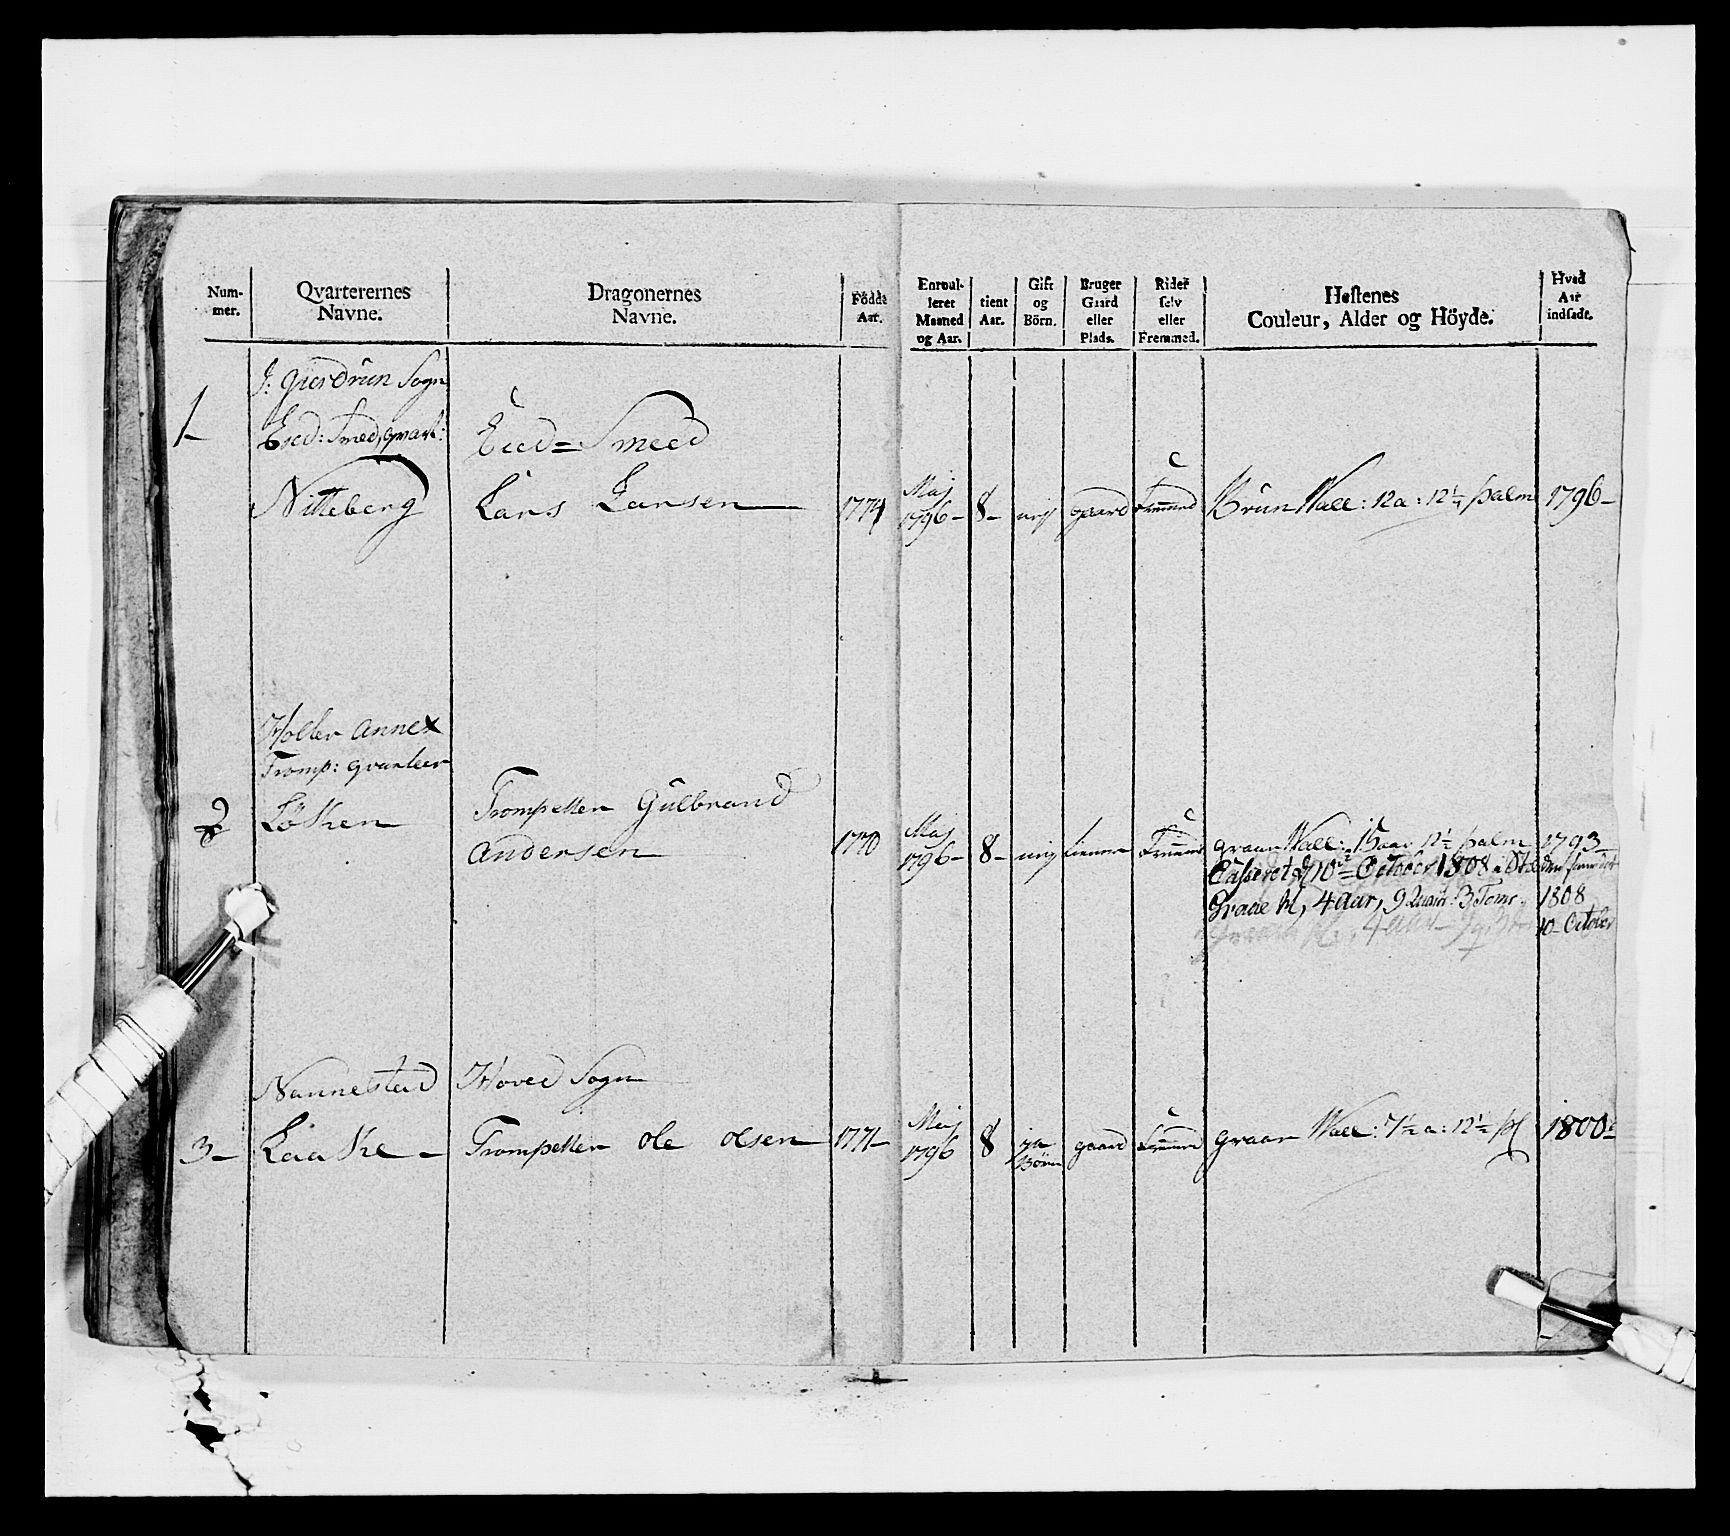 Num-
mer.
Qvarterernes
Navne.
Dragonernes
Navne.
Födde
Aar.
Enroul-
leret
Maaned
og Aar.
tient
Aar.
Gift
og
Börn.
Bruger
Gaard
eller
Plads.
Rider
selv
eller
Fremmed.
Hestenes
Couleur, Alder og Höyde.
Hvad
Aar
indsadt.
J: Gierdrun Sogn
1-
Eed: Smed, qvart:
Eed-Smeed
Nitteberg
Lars Larsen
1774
Maj
1796-
8-
nej
gaard
Fremmed
Brun Wall: 12 a: 12¼ palm
1796-
Holter Annex
Tromp: qvarteer
2
Løken
Trompetter Gulbrand
Andersen
1770
Maj
1796-
8-
nej
tienner
Fremmed
graae Wall: 15 aar 12½ palm
1793-
Casseret d 10de October 1808
Graae H, 4 aar, 9 Quart: 3 Tom.
1808
10 October
Nannestad Hoved Sogn
3-
Laake-
Trompetter Ole Olsen
1771-
Maj
1796
8
ja
Börn
gaard
Fremmed
graae Wall: 7½ a: 12½ pl
1800